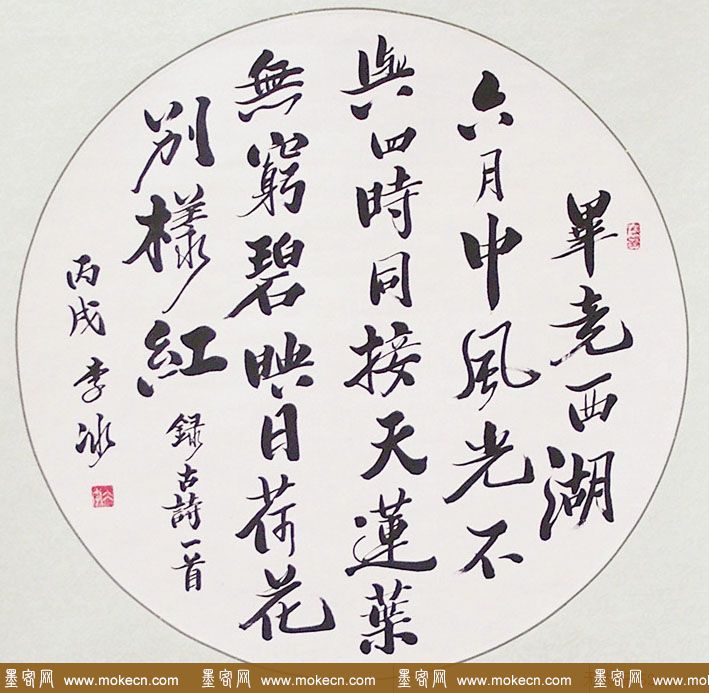 畢竟西湖
六月中風光不
與四時同接天蓮葉
無窮碧映日荷花
別樣紅
録古詩一首
丙戌李冰
墨客网 www.mokecn.com 墨客网 www.mokecn.com 墨客网 www.mokecn.com 墨客网 www.mokecn.com